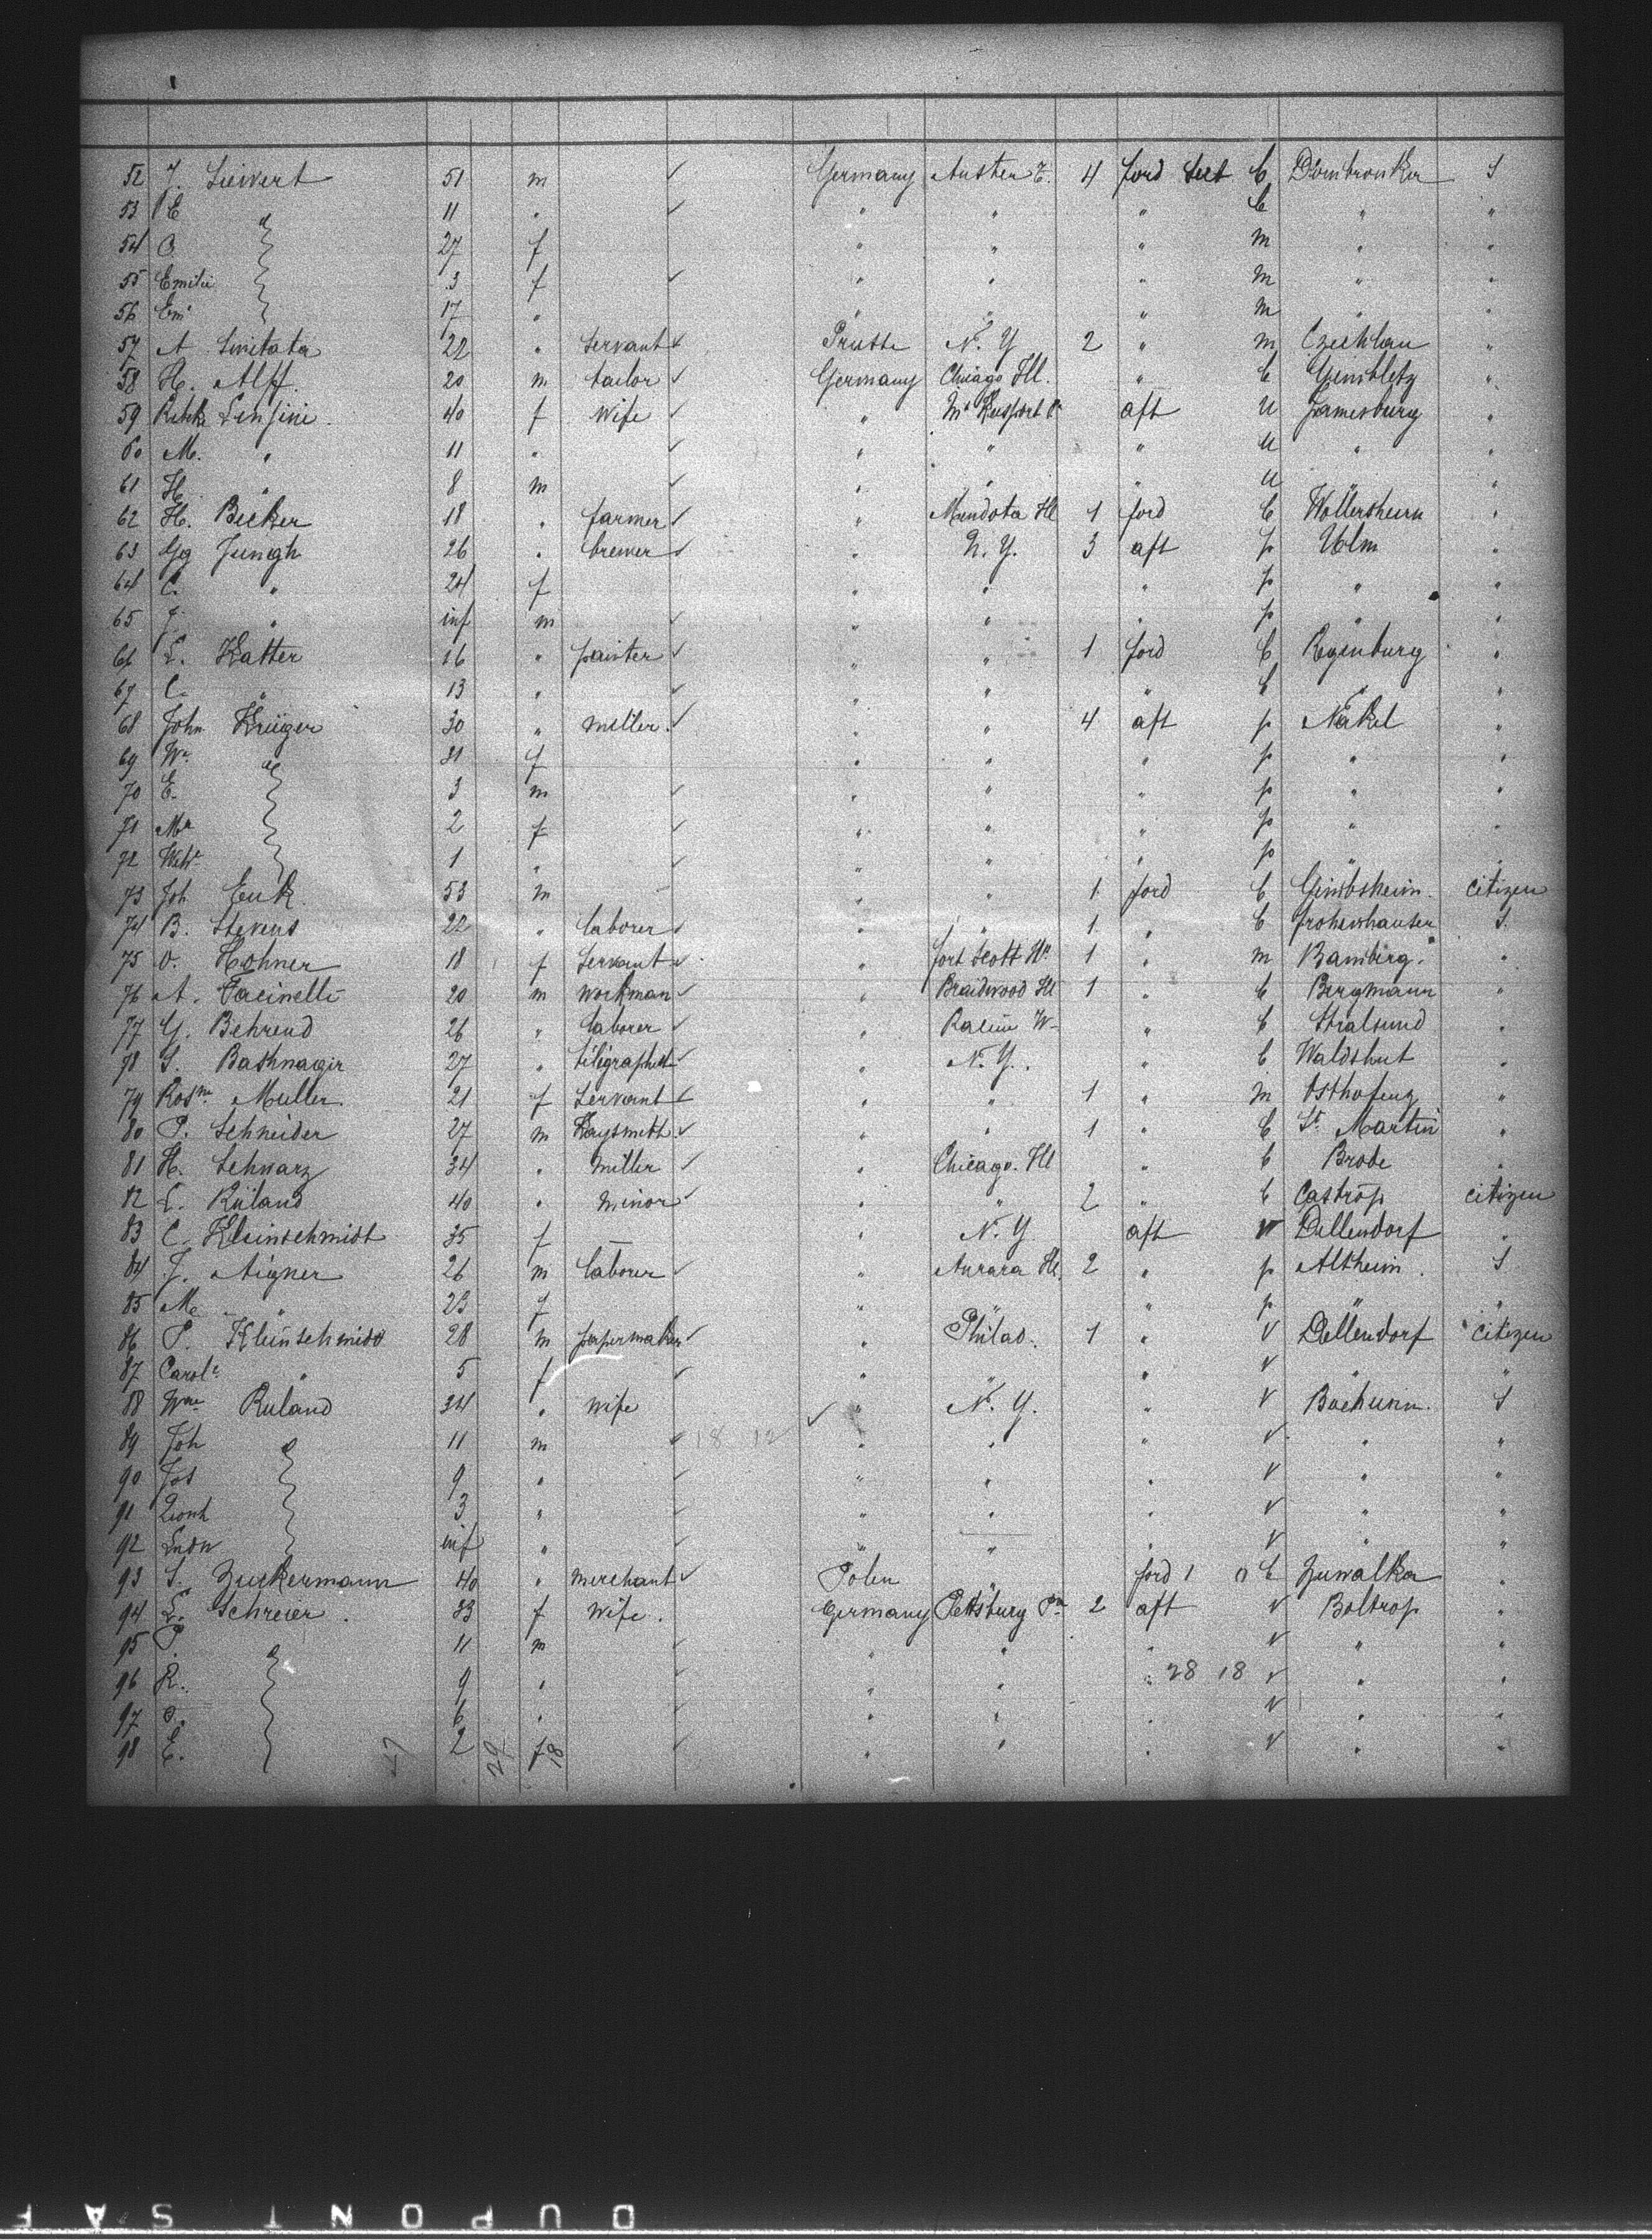 52 J. Sievert 51 m ✓ Germany Austen T. 4 ford Sect C Dombrowka S
53 E 11 " ✓ " " " C " "
54 O. 27 f " " " m " "
55 Emilie 3 f ✓ " " " m " "
56 Em 17 " " " " m " "
57 A. 22 " Servant ✓ N. Y 2 " m Czechlau "
58 H. Alff. 20 m tailor ✓ Germany Chicago Ill. " C "
59 40 f wife ✓ " aft U Jamesburg "
60 M. " 11 " ✓ " " " U " "
61 H. " 8 m ✓ " " " U " "
62 H. Bicker 18 " farmer ✓ " Mendota Ill 1 ford C Wöllersheim "
63 Gg Jungh 26 " brewer ✓ " N. Y. 3 aft p Ulm "
64 C. " 24 f " " " p " "
65 J. " inf m ✓ " " " p " "
66 L. Katter 16 " painter ✓ " " 1 ford C Regenburg "
67 C. " 13 " ✓ " " " C " "
68 John Krüger 30 " miller. ✓ " " 4 aft p Nakel "
69 Wa 31 f " " " p " "
70 E. 3 m ✓ " " " p " "
71 Ma 2 f ✓ " " " p " "
72 1 " ✓ " " " p " "
73 Joh Enk. 53 m " " 1 ford C Gimbsheim. citizen
74 B. Stevens 22 " laborer ✓ " " 1 " C frohenhausen S.
75 O. Hohner 18 f Servant ✓ " fort Scott 1 " m Bamberg. "
76 A. Facinelli 20 m workman ✓ " Braidwood Ill 1 " C Bergmann "
77 G. Behrend 26 " laborer ✓ " Racine W. " C Stralsund "
78 S. Bashnagir 27 " telegraphist ✓ " N. Y. " C Waldshut "
79 Rosne Muller. 21 f Servant ✓ " " 1 " m Osthofeng "
80 P. Schneider 27 m Keysmith ✓ " " 1 " C St. Martin "
81 H. Schwarz 34 " miller ✓ " Chicago. Ill " C Brode "
82 L. Rüland 40 " minor ✓ " " 2 " C Castrop citizen
83 C. Kleinschmidt 35 f " N. Y. aft V Dellendorf "
84 J. Aigner 26 m laborer ✓ " Aurara Ill. 2 " p Altheim. S
85 M. " 23 f " " " p " "
86 P. Kleinschmidt 28 m papermaker ✓ " Philad. 1 " V Dellendorf citizen
87 Carole " 5 f ✓ " " " V " "
88 Wme Ruland 34 " wife ✓ " N. Y. " V Bochum. S
89 Joh 11 m ✓ 18 12 " " " V " "
90 Jos 9 " ✓ " " " V " "
91 3 " ✓ " " " V " "
92 Ludw inf " ✓ " " " V " "
93 S. Zuckermann 40 " merchant ✓ Polen ford 1 C Zuwalka "
94 L. Schreier. 33 f wife. Germany Pettsburg Pa 2 aft V Boltrop "
95 P. 11 m ✓ " " " V " "
96 R. 9 " ✓ " " " 28 18 V " "
97 6 " ✓ " " " V " "
98 E. 2 f ✓ " " " V " "
29 18
DUPONT SAF